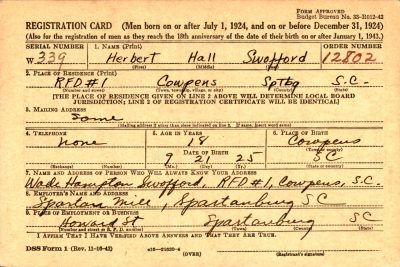 FORM APPROVED
Budget Bureau No. 33-R012-42
REGISTRATION CARD (Men born on or after July 1, 1924, and on or before December 31, 1924)
(Also for the registration of men as they reach the 18th anniversary of the date of their birth on or after January 1, 1943.)
SERIAL NUMBER 1. NAME (Print) ORDER NUMBER
W 339 Herbert Hall Swofford 12802
2. PLACE OF RESIDENCE (Print)
RFD #1 Cowpens Sptbg S.C.
(THE PLACE OF RESIDENCE GIVEN ON LINE 2 ABOVE WILL DETERMINE LOCAL BOARD
JURISDICTION; LINE 2 OF REGISTRATION CERTIFICATE WILL BE IDENTICAL)
3. MAILING ADDRESS
Same
(Mailing address if other than place indicated on line 2. If same, insert word same)
4. TELEPHONE 5. AGE IN YEARS 6. PLACE OF BIRTH
none 18 Cowpens
DATE OF BIRTH
9 21 25 SC
7. NAME AND ADDRESS OF PERSON WHO WILL ALWAYS KNOW YOUR ADDRESS
Wade Hampton Swofford, RFD #1, Cowpens, S.C.
8. EMPLOYER'S NAME AND ADDRESS
Spartan Mill, Spartanburg SC
9. PLACE OF EMPLOYMENT OR BUSINESS
Howard St Spartanburg SC
(Number and street or R.F.D. number) (Town) (County) (State)
I AFFIRM THAT I HAVE VERIFIED ABOVE ANSWERS AND THAT THEY ARE TRUE.
DSS Form 1 (Rev. 11-16-42) (OVER) (Registrant's signature)